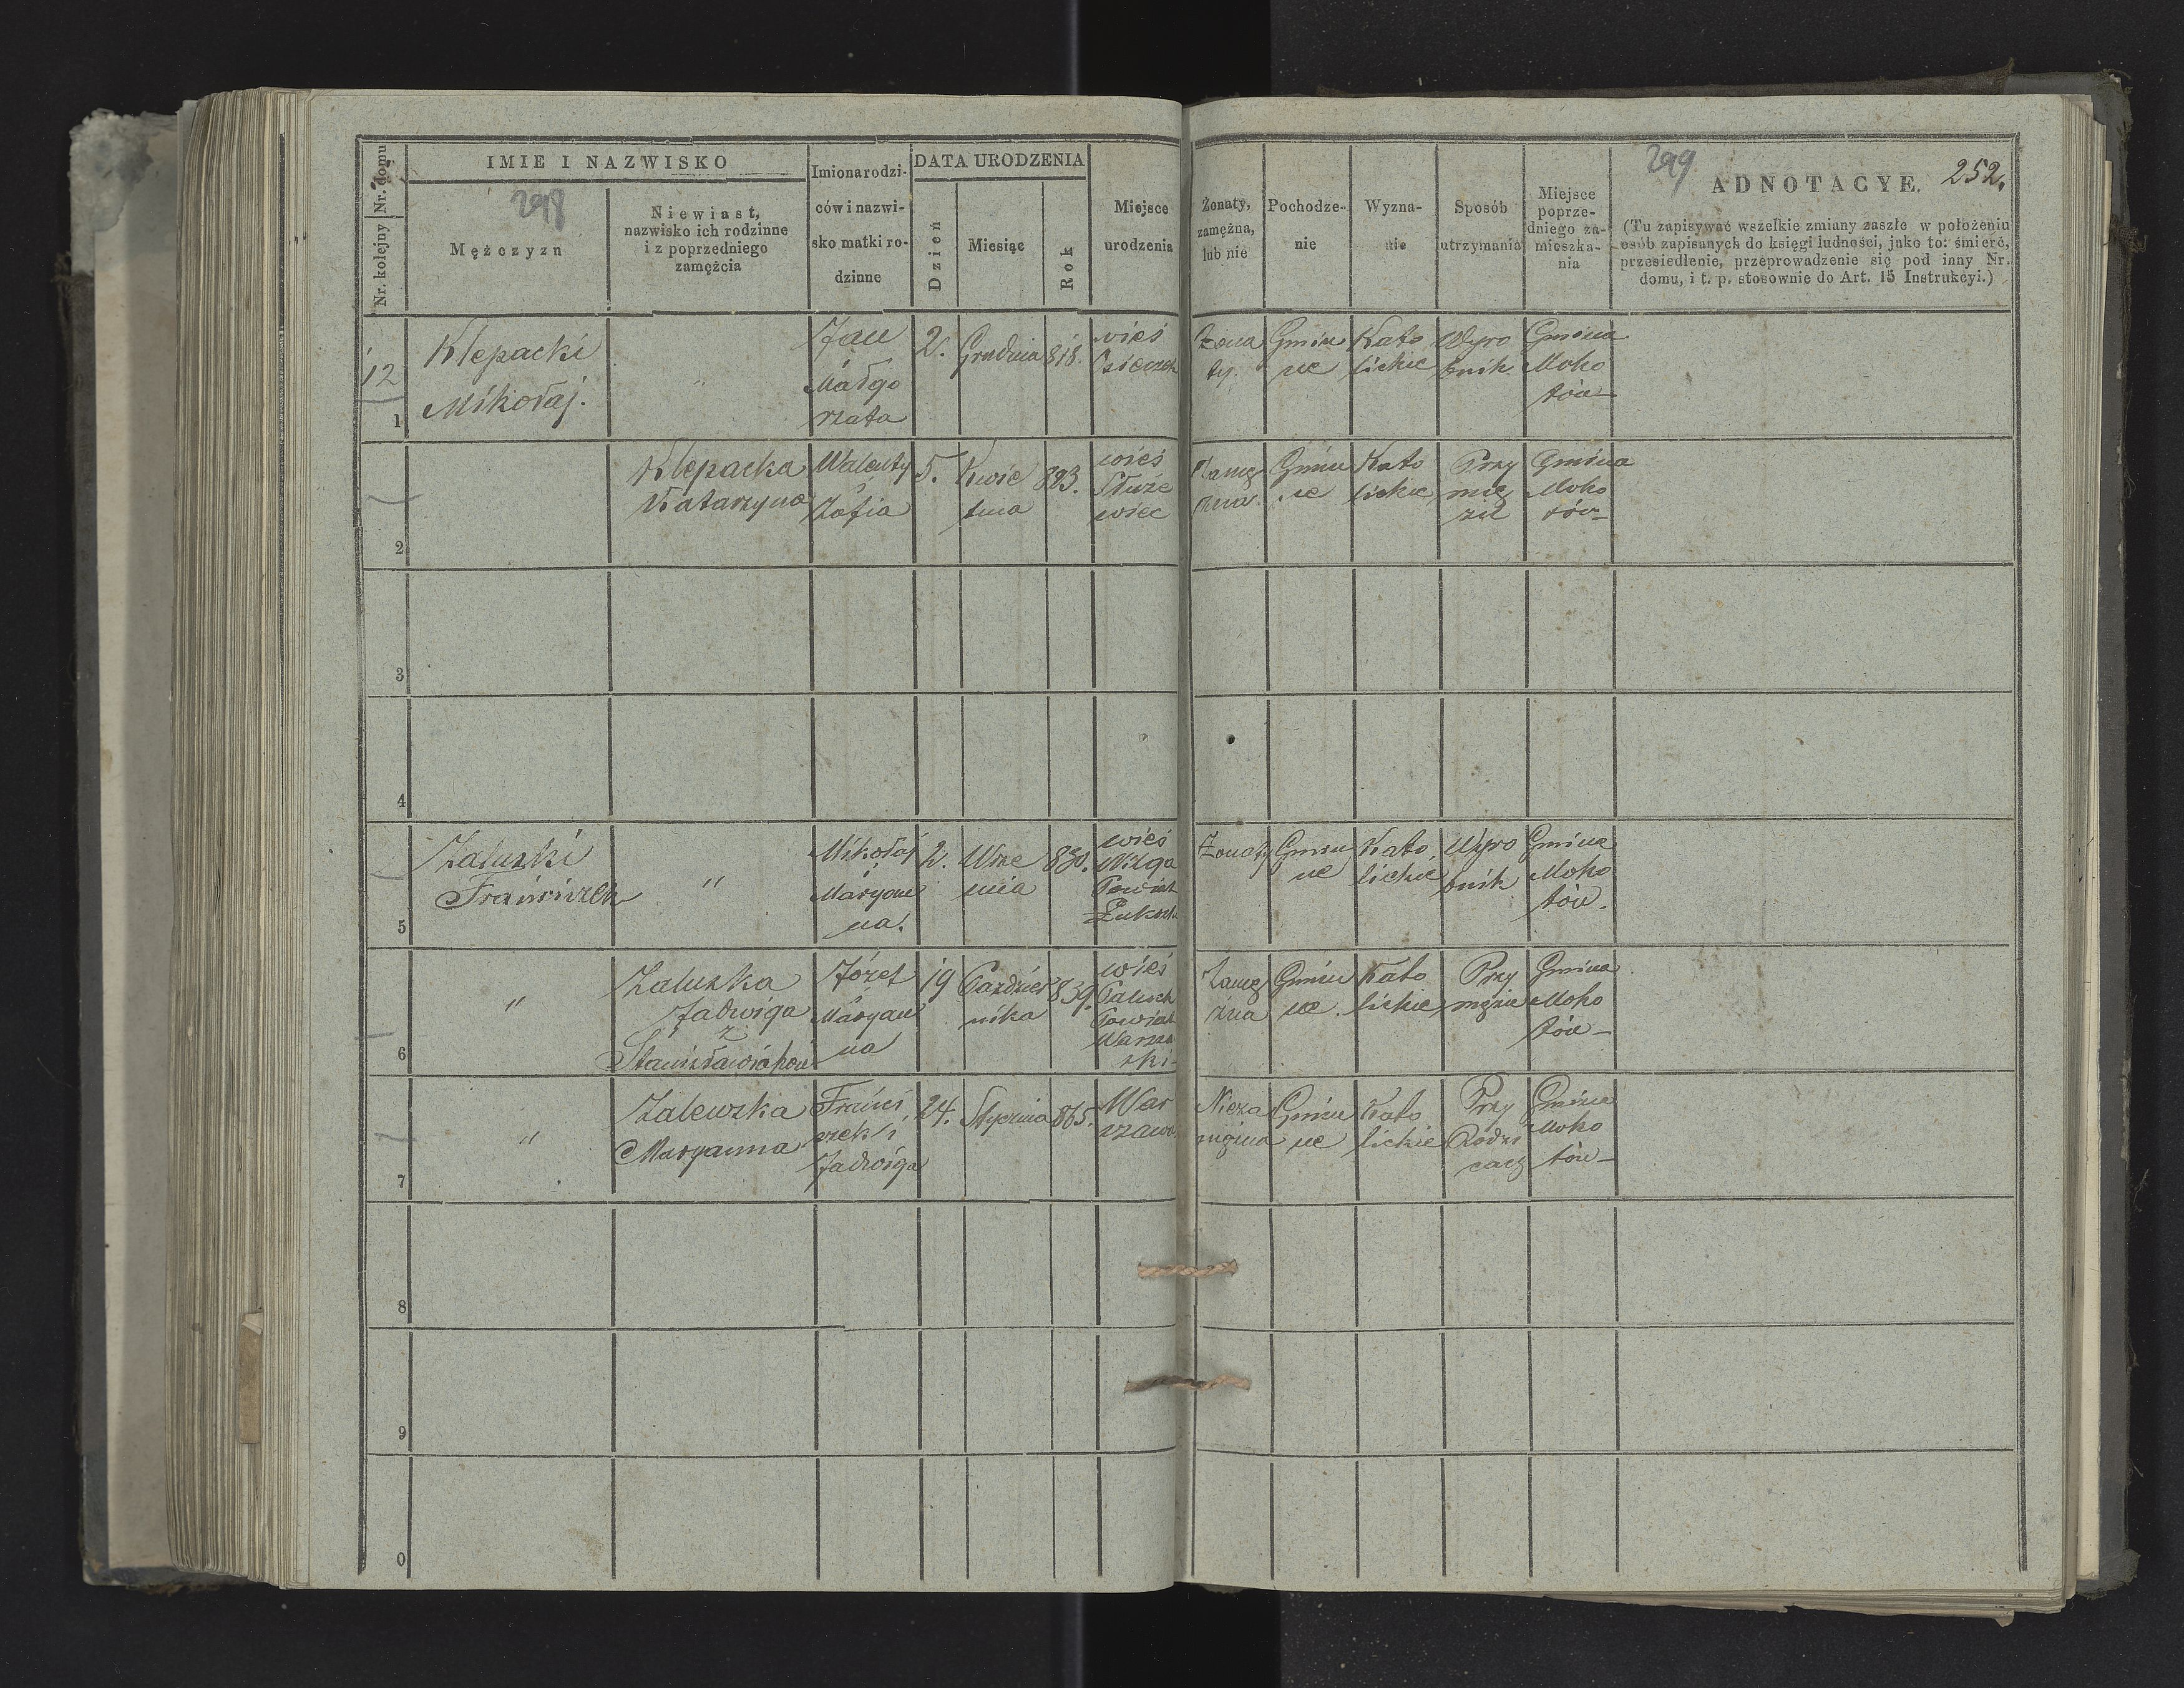 Nr. kolejny Nr. domu
IMIE I NAZWISKO
298
Mężczyzn
Niewiast,
nazwisko ich rodzinne
i z poprzedniego
zamężcia
Imiona rodzi-
ców i nazwi-
sko matki ro-
dzinne
DATA URODZENIA
Dzień
Miesiąc
Rok
Miejsce
urodzenia
Żonaty,
zamężna,
lub nie
Pochodze-
nie
Wyzna-
nie
Sposób
utrzymania
Miejsce
poprze-
dniego za-
mieszka-
nia
299
ADNOTACYE.
252.
(Tu zapisywać wszelkie zmiany zaszłe w położeniu
osób zapisanych do księgi ludności, jako to: śmierć,
przesiedlenie, przeprowadzenie się pod inny Nr.
domu, i t. p. stosownie do Art. 15 Instrukcyi.)
12
1
Klepacki
Mikołaj.
"
Jan
i
Małgo
rzata
2.
Grudnia
818.
wieś
Żona
ty.
Gmin
ne
Kato
lickie
Wyro
bnik
Gmina
Moko
tów
2
Klepacka
Katarzyna
Walenty
i
Zofia
5.
Kwie
tnia
823.
wieś
Służe
wiec
Zamę
żna
Gmin
ne
Kato
lickie
Przy
mę
żu
Gmina
Moko
tów
3
4
5
Zaluski
Franciszek
"
Mikołaj
i
Maryan
na.
2.
Wrze
śnia
830.
wieś
Wilga
Powiat
Łukow
Żonaty
Gmin
ne
Kato
lickie
Wyro
bnik
Gmina
Moko
tów.
6
"
Zaluska
Jadwiga
z
Józef
i
Maryan
na
19
Paździer
nika
839.
wieś
Paluch
Powiat
Warsza
ski
Zamę
żna
Gmin
ne
Kato
lickie
Przy
mężu
Gmina
Moko
tów
7
"
Zalewska
Maryanna
Franci
szek i
Jadwiga
24.
Stycznia
865.
War
szawa
Nieza
mężna
Gmin
ne
Kato
lickie
Przy
Rodzi
cach
Gmina
Moko
tów
8
9
0